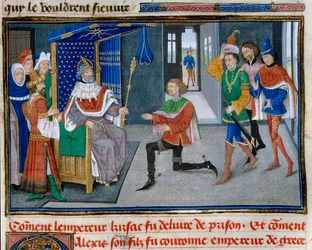 qui le vouldrent sieuire
Coment lempereur kirsac fu deliure de prison. Et coment
Alexis son filz fu couronne empereur de grece